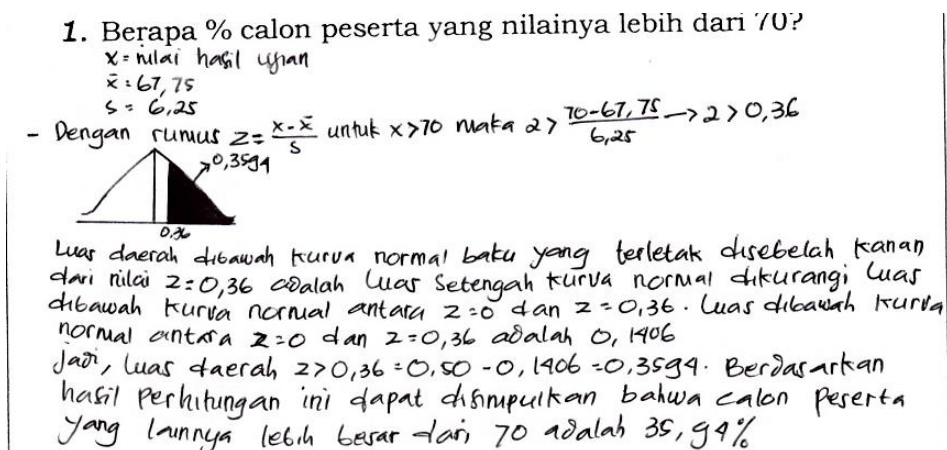 1. Berapa % calon peserta yang nilainya lebih dari 70?
x = nilai hasil ujian
x̄ : 67,75
s = 6,25
- Dengan rumus z = (x - x̄)/s untuk x > 70 maka z > (70 - 67,75)/6,25 → z > 0,36
0,3594
0.36
Luas daerah dibawah kurva normal baku yang terletak disebelah kanan
dari nilai z = 0,36 adalah luas setengah kurva normal dikurangi luas
dibawah kurva normal antara z = 0 dan z = 0,36. Luas dibawah kurva
normal antara z = 0 dan z = 0,36 adalah 0,1406
Jadi, luas daerah z > 0,36 = 0,50 - 0,1406 = 0,3594. Berdasarkan
hasil perhitungan ini dapat disimpulkan bahwa calon peserta
yang lainnya lebih besar dari 70 adalah 35,94%